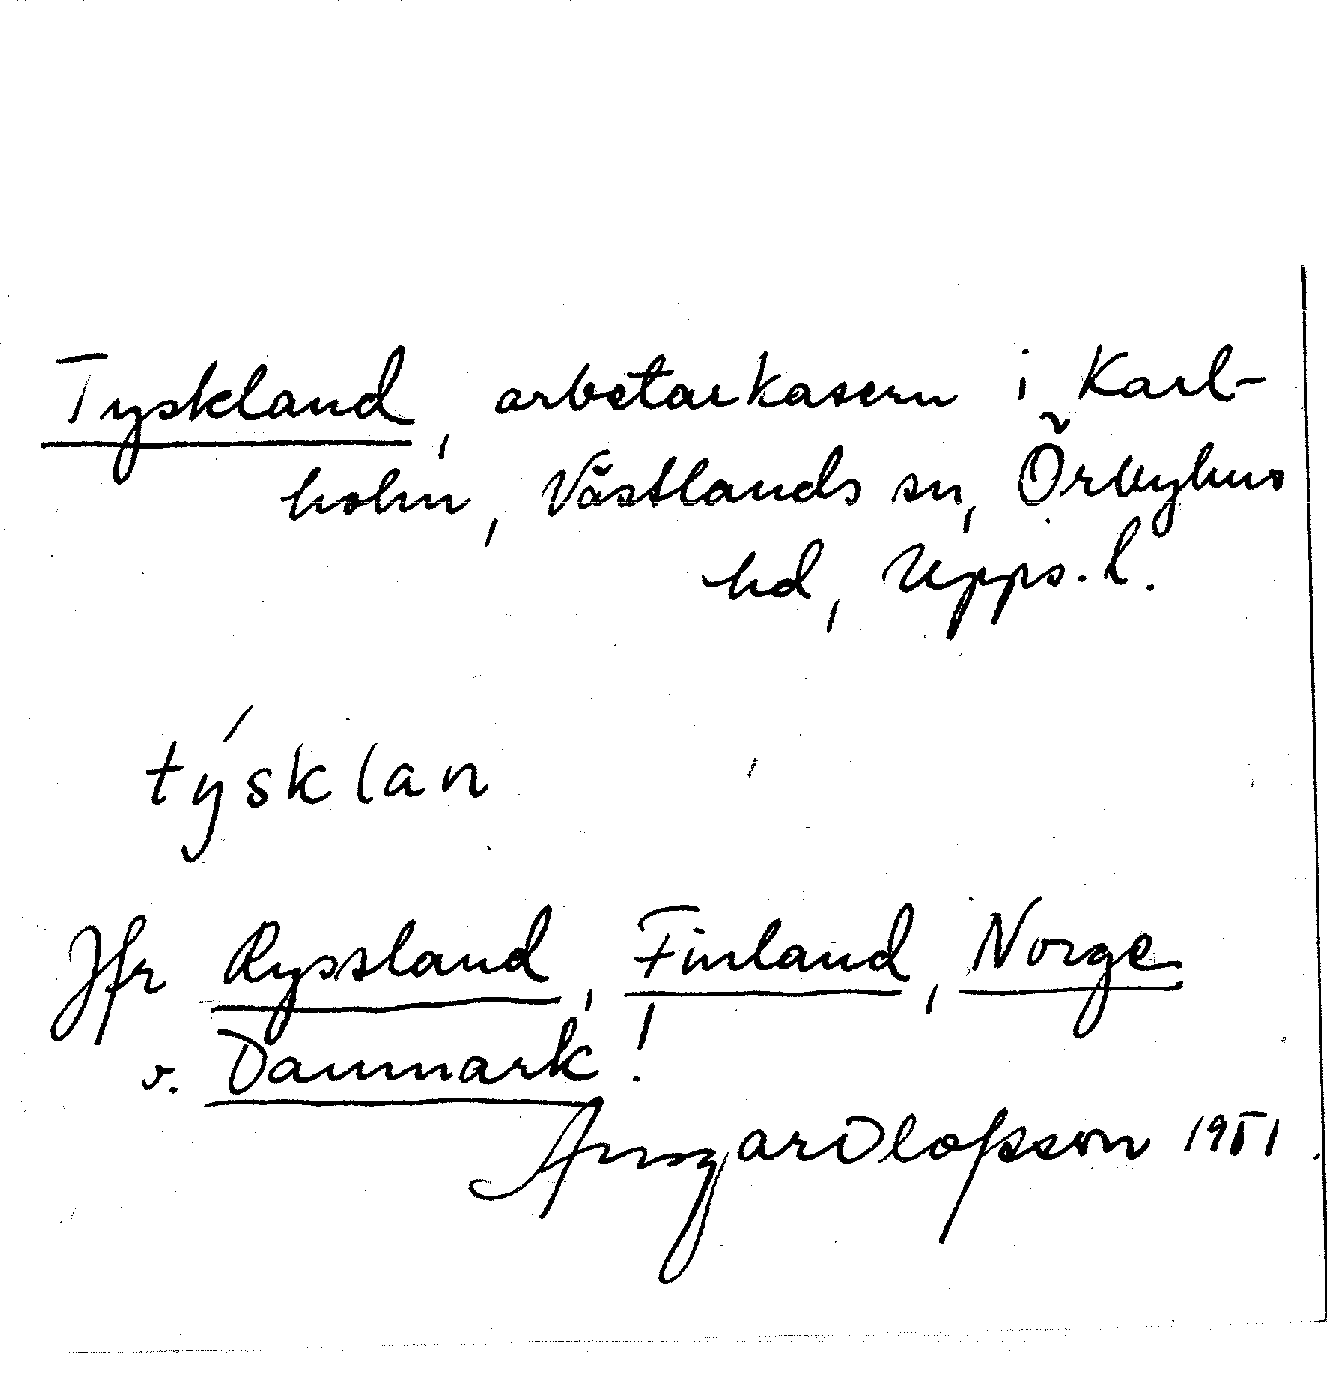 Tyskland, arbetarkasern i Karl-
holm, Västlands sn, Örbyhus
hd, Upps. l.
týsklan
Jfr Ryssland, Finland, Norge
o. Danmark!
Ansgar Olofsson 1951